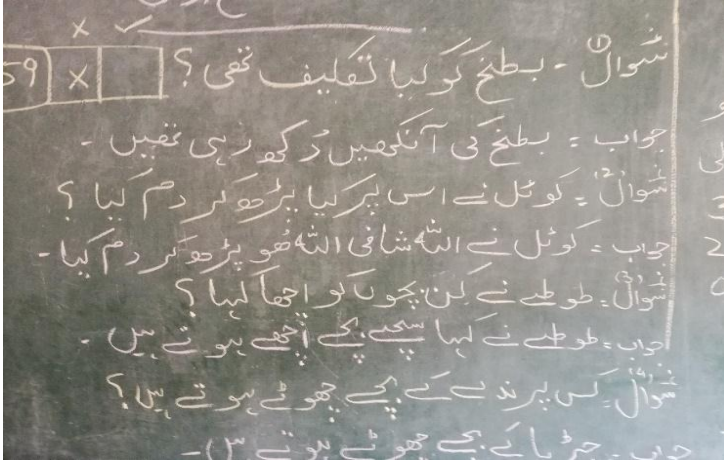 59 x
سوال ۱ - بطخ کو کیا تکلیف تھی ؟
جواب = بطخ کی آنکھیں دُکھ رہی تھیں -
سوال (۲) = کوئل نے اس پر کیا پڑھ کر دم کیا ؟
جواب = کوئل نے اللہ شافی اللہ ھُو پڑھ کر دم کیا -
سوال (۳) = طوطے نے کن بچوں کو اچھا کہا ؟
جواب = طوطے نے کہا سچے بچے اچھے ہوتے ہیں -
سوال (۴) = کس پرندے کے بچے چھوٹے ہوتے ہیں ؟
جواب - چڑیا کے بچے چھوٹے ہوتے ہیں -